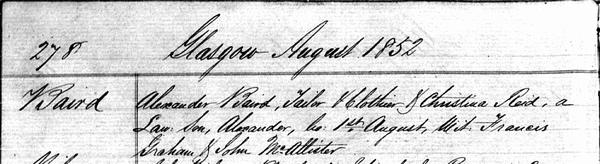 278 Glasgow August 1852
Baird Alexander Baird, Tailor & Clothier & Christina Reid, a
Law. Son, Alexander, bo. 1st August, Wit. Francis
Graham & John McAllister